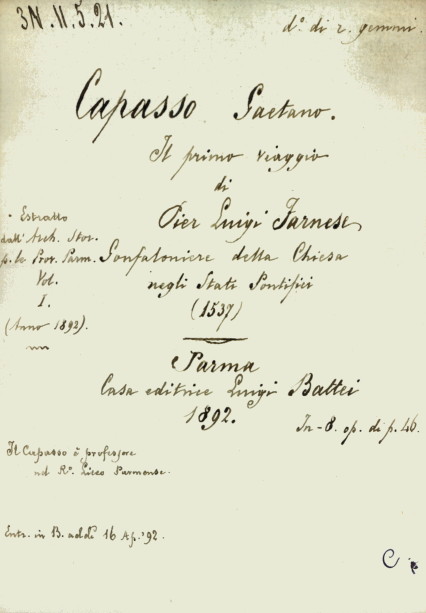 3N.II.5.21.
d°. di z. gemini.
Capasso Gaetano.
Il primo viaggio
di
Pier Luigi Farnese
Gonfaloniere della Chiesa
negli Stati Pontifici
(1537)
Estratto
dall'Arch. Stor.
p. le Prov. Parm.
Vol.
I.
(Anno 1892).
Parma
Casa editrice Luigi Battei
1892.
In-8. op. di p. 46.
Il Capasso è professore
nel R°. Liceo Parmense.
Entr. in B. addì 16 Ap. '92.
C